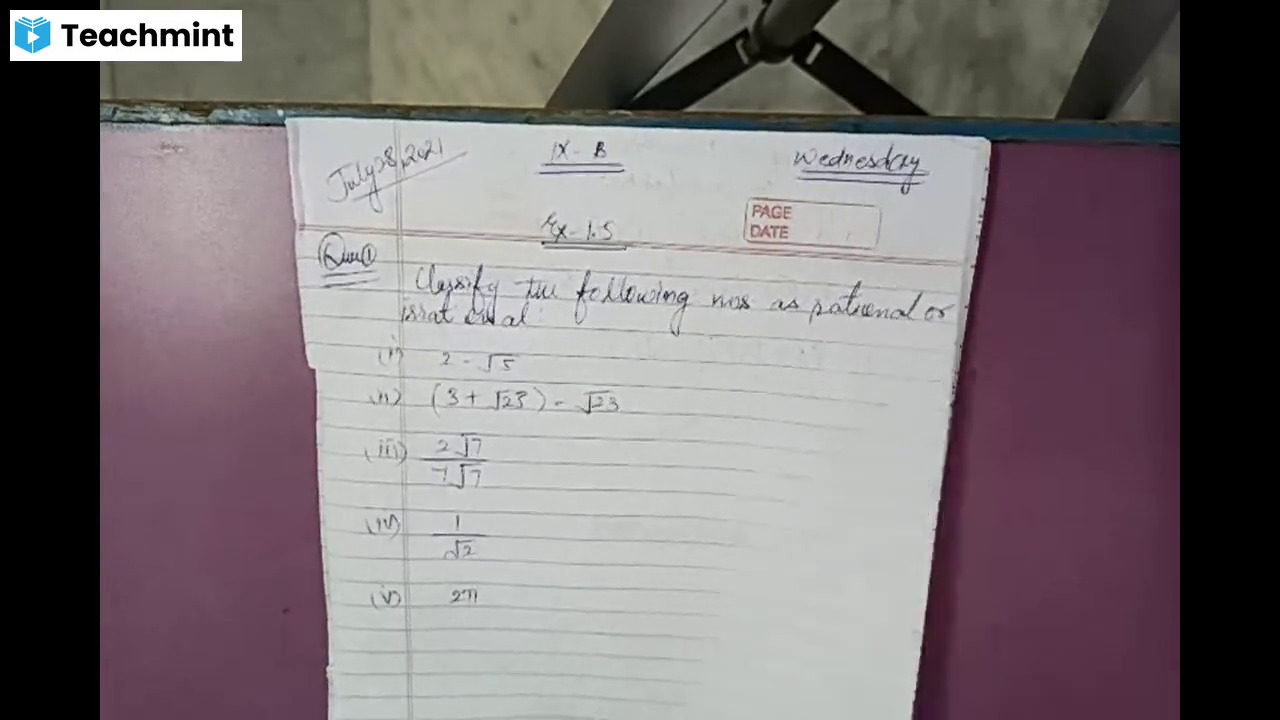 Teachmint
July 28, 2021
IX - B
Wednesday
PAGE
DATE
Ex - 1.5
Ques ①
Classify the following nos as rational or
irrational :
(i) 2 - √5
(ii) (3 + √23) - √23
(iii) 2√7 / 7√7
(iv) 1 / √2
(v) 2π